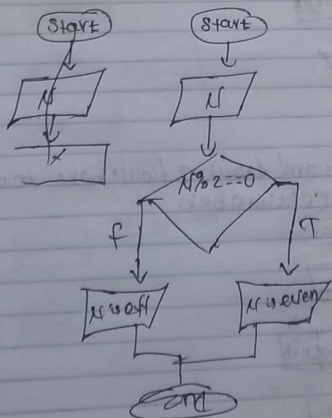 Start Start
N N
N%2==0
f T
N is off N is even
End